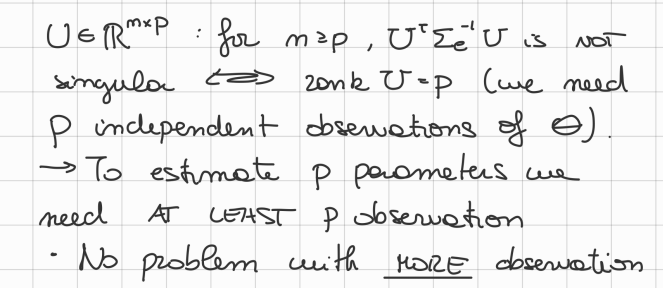 U ∈ ℝ^{m×p} : for m ≥ p, Uᵀ Σₑ⁻¹ U is NOT
singular ⟺ rank U = p (we need
p independent observations of Θ).
→ To estimate p parameters we
need AT LEAST p observation
· No problem with MORE observation